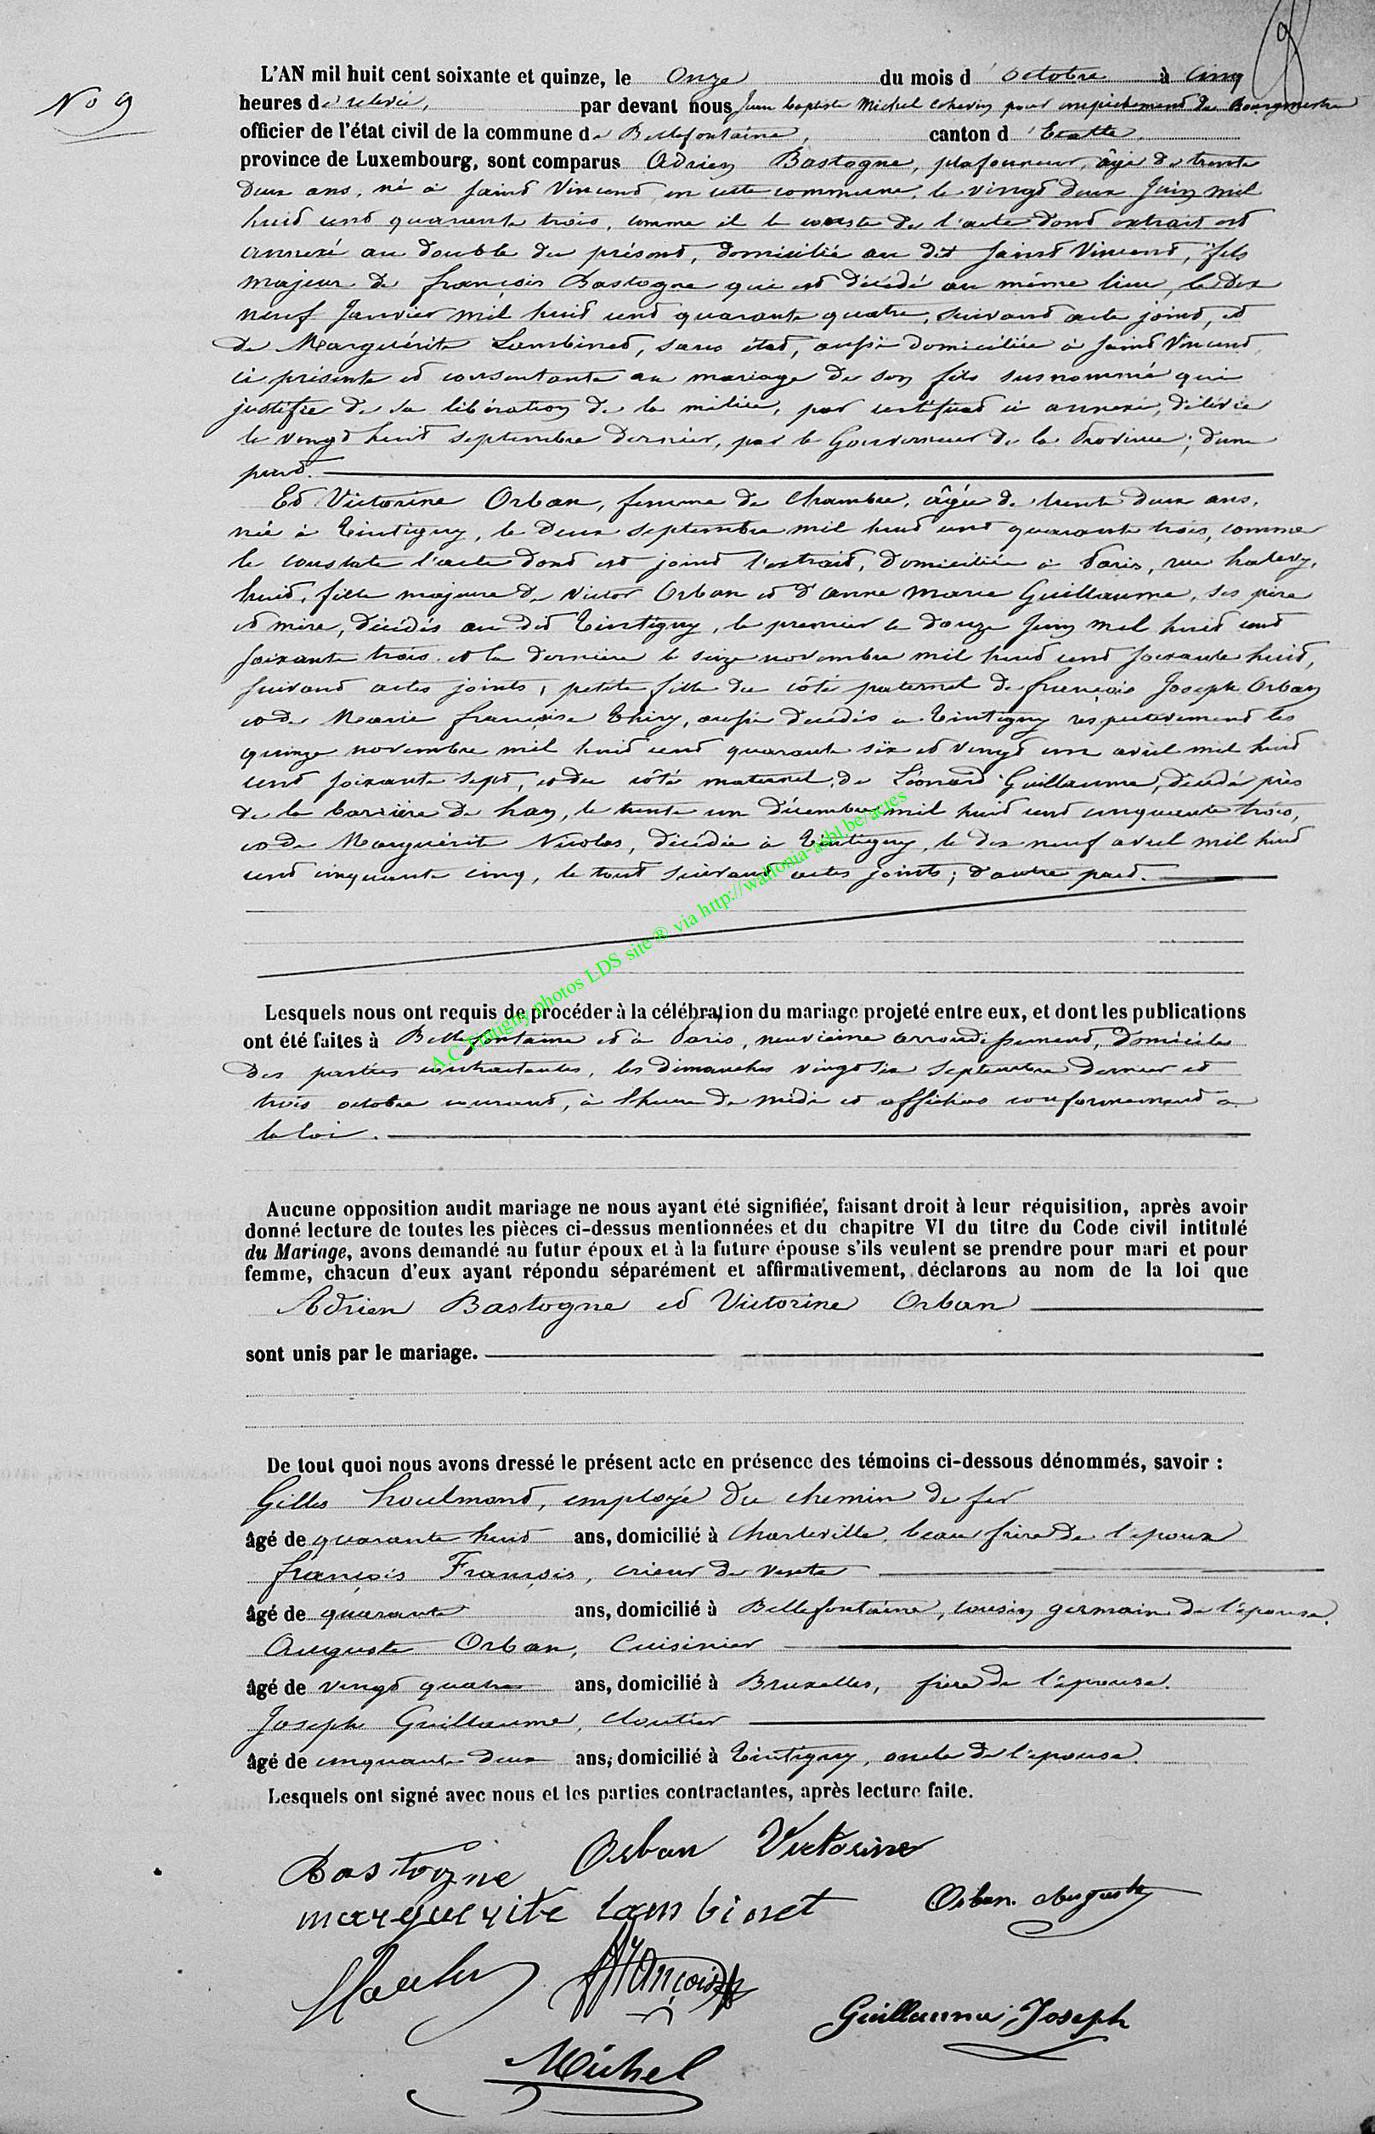 No 9
L'AN mil huit cent soixante et quinze, le Onze du mois d'octobre à Cinq
heures de relevée, par devant nous Jean Baptiste Michel Echevin pour empêchement du Bourgmestre
officier de l'état civil de la commune de Bellefontaine, canton d'Etalle,
province de Luxembourg, sont comparus Adrien Bastogne, plafonneur, âgé de trente
deux ans, né à Saint Vincent en cette commune, le vingt deux Juin mil
huit cent quarante trois, comme il le conste de l'acte dont extrait est
annexé au double du présent, domicilié au dit Saint Vincent, fils
majeur de françois Bastogne qui est décédé au même lieu, le dix
neuf Janvier mil huit cent quarante quatre, suivant acte joint, et
de Marguérite Lambinet, sans état, aussi domiciliée à Saint Vincent,
ci présente et consentante au mariage de son fils susnommé qui
justifie de sa libération de la milice, par certificat ci annexé, délivré
le vingt huit septembre dernier, par le Gouverneur de la Province; d'une
part.
Et Victorine Orban, femme de chambre, âgée de trente deux ans,
née à Tintigny, le deux septembre mil huit cent quarante trois, comme
le constate l'acte dont est joint l'extrait, domiciliée à Paris, rue halevy,
huit, fille majeure de Victor Orban et d'anne marie Guillaume, ses père
et mère, décédés au dit Tintigny, le premier le douze Juin mil huit cent
soixante trois et la dernière le seize novembre mil huit cent soixante huit,
suivant actes joints; petite fille du côté paternel de françois Joseph Orban
et de Marie françoise Thiry, aussi décédés à Tintigny respectivement les
quinze novembre mil huit cent quarante six et vingt un avril mil huit
cent soixante sept, et du côté maternel, de Léonard Guillaume, décédé près
de la barrière de han, le trente un décembre mil huit cent cinquante trois,
et de Marguérite Nicolas, décédée à Tintigny, le dix neuf avril mil huit
cent cinquante cinq, le tout suivant actes joints; d'autre part.
A.C. Tintigny photos LDS site ® via http://wallonia-asbl.be/actes
Lesquels nous ont requis de procéder à la célébration du mariage projeté entre eux, et dont les publications
ont été faites à Bellefontaine et à Paris, neuvième arrondissement, domiciles
des parties contractantes, les dimanches vingt six septembre dernier et
trois octobre courant, à l'heure de midi et affichées conformément à
la loi.
Aucune opposition audit mariage ne nous ayant été signifiée, faisant droit à leur réquisition, après avoir
donné lecture de toutes les pièces ci-dessus mentionnées et du chapitre VI du titre du Code civil intitulé
du Mariage, avons demandé au futur époux et à la future épouse s'ils veulent se prendre pour mari et pour
femme, chacun d'eux ayant répondu séparément et affirmativement, déclarons au nom de la loi que
Adrien Bastogne et Victorine Orban
sont unis par le mariage.
De tout quoi nous avons dressé le présent acte en présence des témoins ci-dessous dénommés, savoir :
Gilles houlmont, employé du chemin de fer
âgé de quarante huit ans, domicilié à Charleville, beau frère de l'époux
françois François, crieur de vente
âgé de quarante ans, domicilié à Bellefontaine, cousin germain de l'épouse.
Auguste Orban, Cuisinier
âgé de vingt quatre ans, domicilié à Bruxelles, frère de l'épouse.
Joseph Guillaume, cloutier
âgé de cinquante deux ans, domicilié à Tintigny, oncle de l'épouse.
Lesquels ont signé avec nous et les parties contractantes, après lecture faite.
Bastogne Orban Victorine
marguerite lambinet Orban Auguste
François
Guillaume Joseph
Michel